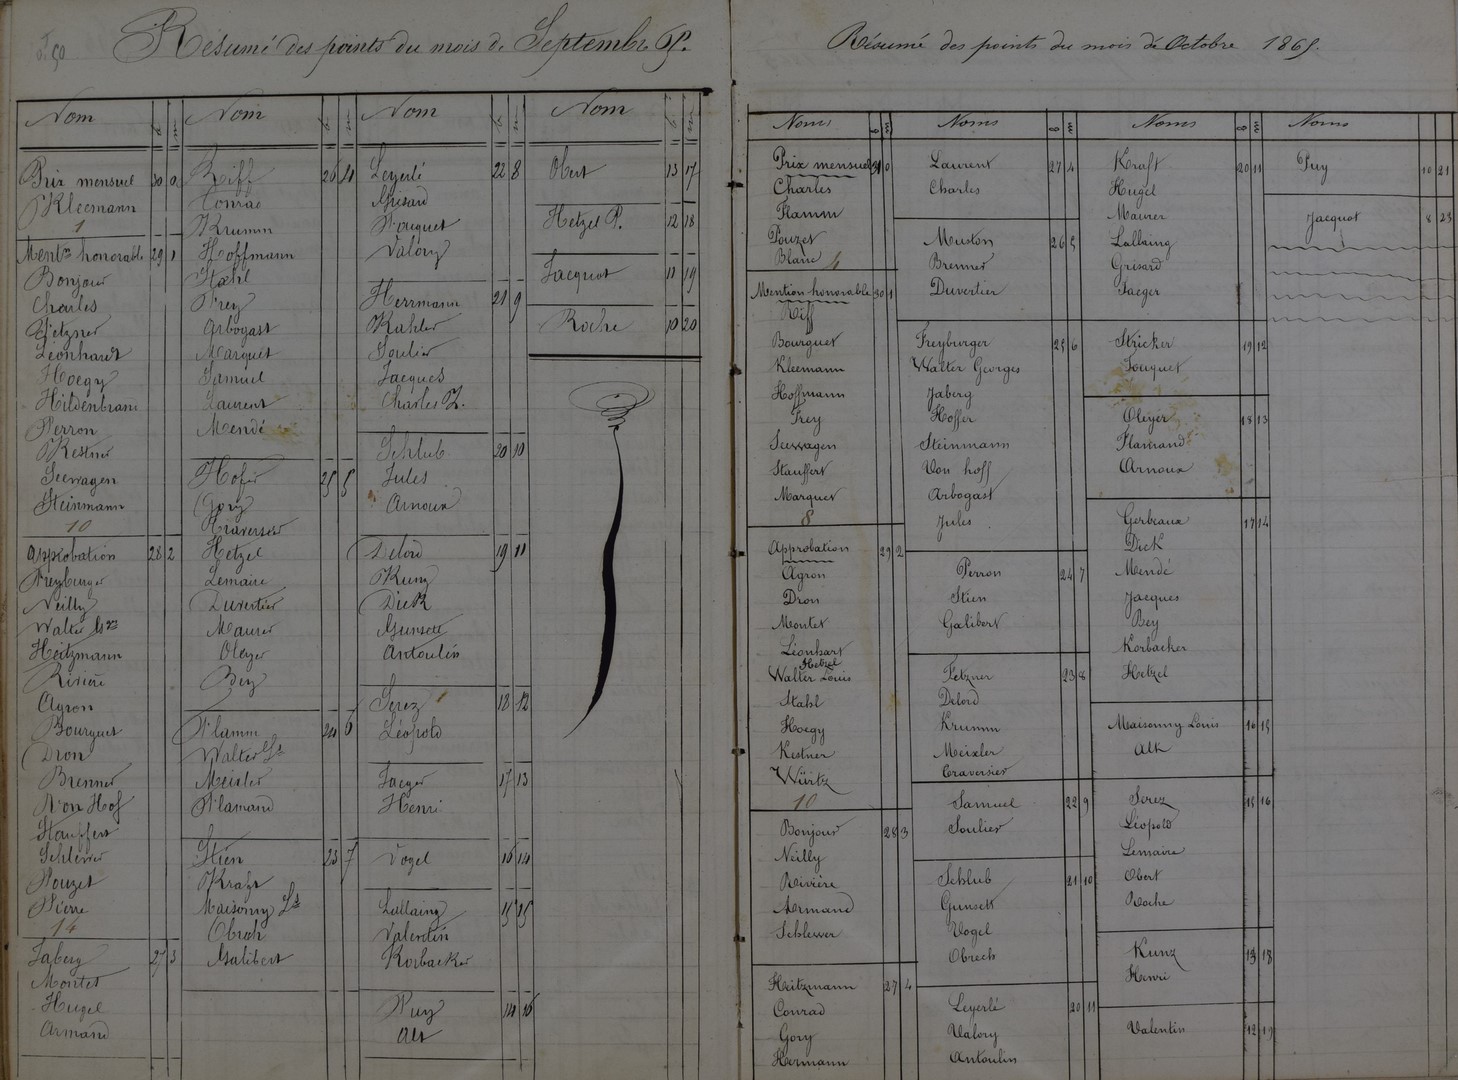 Résumé des points du mois de Septembre 65.
Nom b m
Prix mensuel 30 0
Kleemann
1
Ment.on honorable 29 1
Bonjour
Charles
Fetzner
Léonhardt
Hoegy
Hildenbrand
Perron
Kestner
Seewagen
Steinmann
10
Approbation 28 2
Freyburger
Neilly
Walter Ges
Heitzmann
Rivière
Agron
Bourguet
Dron
Brenner
Von Hof
Stauffert
Schlewer
Pouzet
Pierre
14
Jaberg 27 3
Montet
Hugel
Armand
Nom b m
Riff 26 4
Conrad
Krumm
Hoffmann
Stahl
Frey
Arbogast
Marquet
Samuel
Laurent
Mendé
Hofer 25 5
Gory
Traversier
Hetzel
Lemaire
Duvertier
Maurer
Oleyer
Bey
Flamm 24 6
Walter Ls
Meixler
Flamand
Stien 23 7
Kraft
Maisonny Ls
Obrech
Galibert
Nom b m
Leyerlé 22 8
Grisard
Fouquet
Valory
Herrmann 21 9
Kahler
Soulier
Jacques
Charles
Schlub 20 10
Jules
Arnoux
Delord 19 11
Kunz
Dick
Gunsett
Antoulin
Serez 18 12
Léopold
Jaeger 17 13
Henri
Vogel 16 14
Lallaing 15 15
Valentin
Korbacker
Puy 14 16
Alt
Nom b m
Obert 13 17
Hetzel P. 12 18
Jacquot 11 19
Roche 10 20
Résumé des points du mois de Octobre 1865.
Noms b m
Prix mensuel 31 0
Charles
Flamm
Pouzet
Blanc 4
Mention honorable 30 1
Riff
Bourguet
Kleemann
Hoffmann
Frey
Seewagen
Stauffert
Marquet
8
Approbation 29 2
Agron
Dron
Montet
Léonhart
Hetzel
Walter Louis
Stahl
Hoegy
Kestner
Würtz
10
Bonjour 28 3
Neilly
Rivière
Armand
Schlewer
Heitzmann 27 4
Conrad
Gory
Hermann
Noms b m
Laurent 27 4
Charles
Muston 26 5
Brenner
Duvertier
Freyburger 25 6
Walter Georges
Jaberg
Hoffer
Steinmann
Von hoff
Arbogast
Jules
Perron 24 7
Stien
Galibert
Fetzner 23 8
Delord
Krumm
Meixler
Traversier
Samuel 22 9
Soulier
Schlub 21 10
Gunsett
Vogel
Obrech
Leyerlé 20 11
Valory
Antoulin
Noms b m
Kraft 20 11
Hugel
Maurer
Lallaing
Grisard
Jaeger
Stricker 19 12
Fouquet
Oleyer 18 13
Flamand
Arnoux
Gerbeaux 17 14
Dick
Mendé
Jacques
Bey
Korbacker
Hetzel
Maisonny Louis 16 15
Alt
Serez 15 16
Léopold
Lemaire
Obert
Roche
Kunz 13 18
Henri
Valentin 12 19
Noms
Puy 10 21
Jacquot 8 23